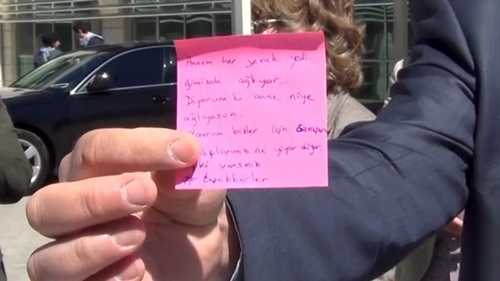 Annem her yemek yedi
ğimizde ağlıyor.
Diyorum ki anne niye
ağlıyosun.
Yavrum bizler için
ne yiyor diyor.
ki varsınız
# teşekkürler